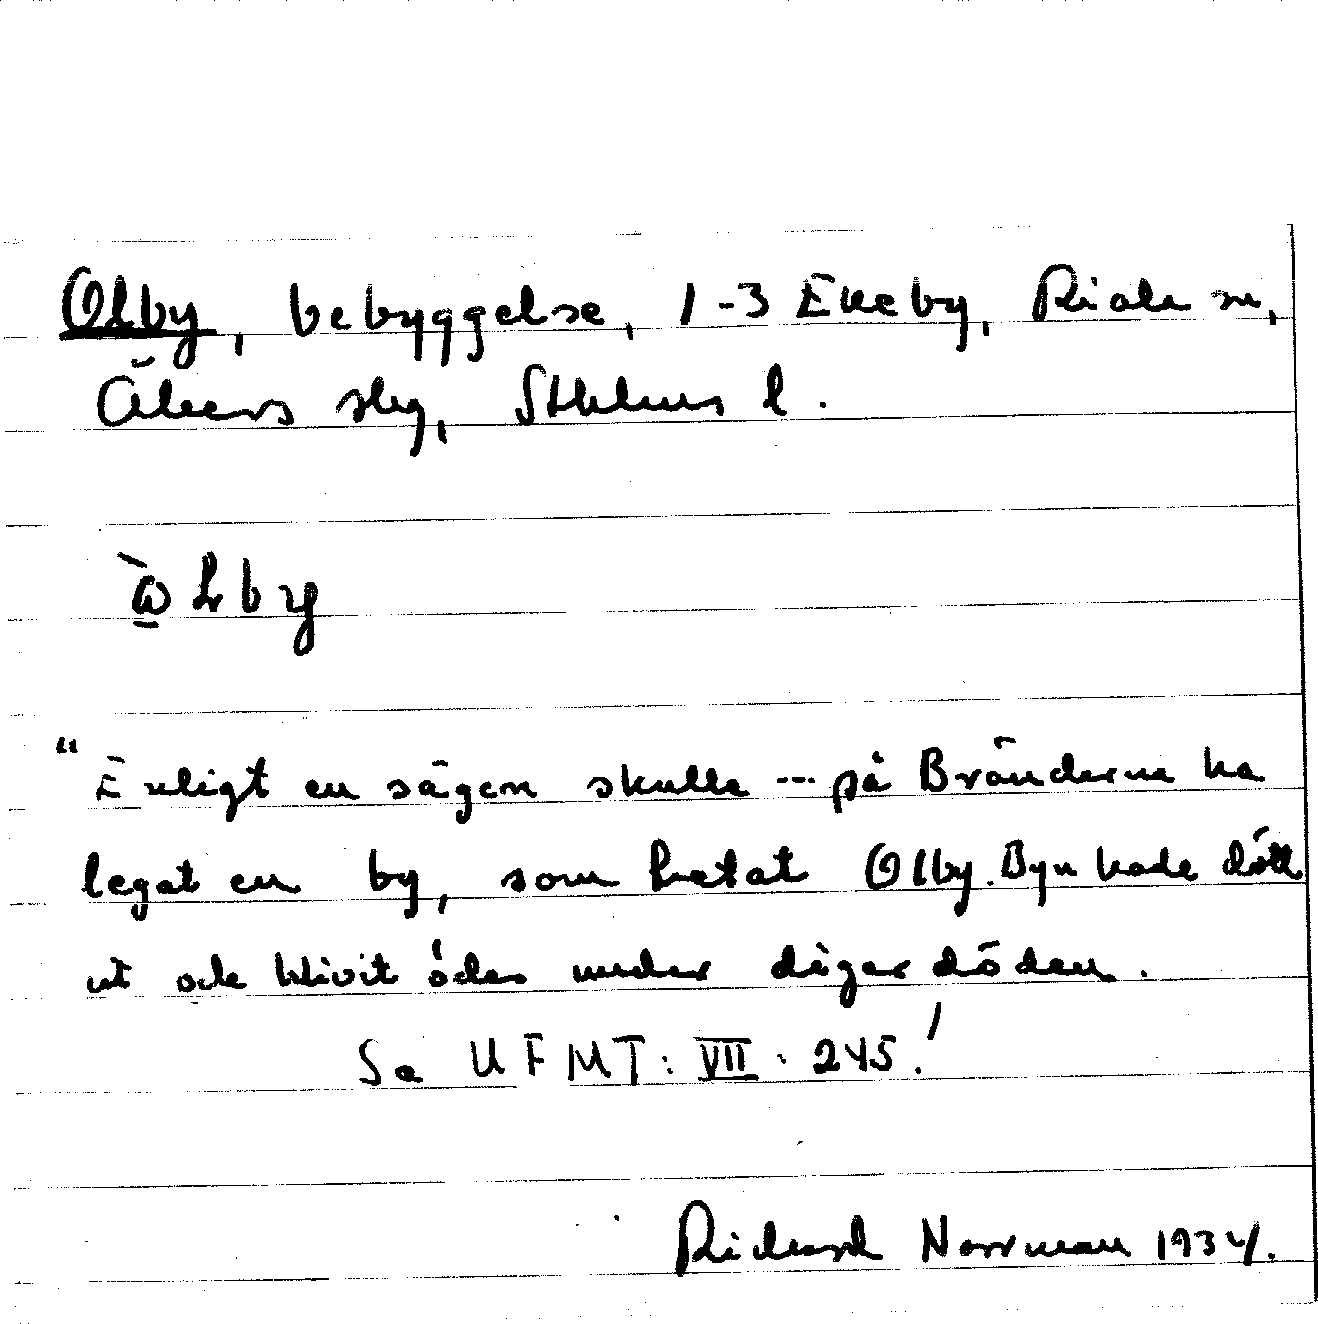 Olby, bebyggelse, 1-3 Ekeby, Riala sn,
Åkers skg, Sthlms l.
"Enligt en sägen skulle --- på Bränderna ha
legat en by, som hetat Olby. Byn hade dött
ut och blivit öde under digerdöden.
Se UFMT: VII: 245.
Richard Norrman 1934.